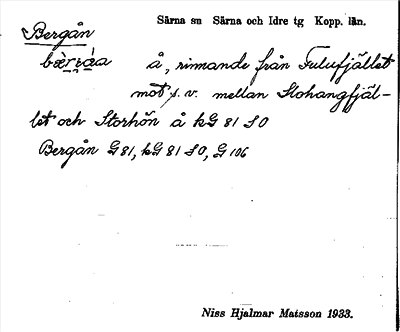 Bergån
Särna sn Särna och Idre tg Kopp. län.
å, rinnande från Fulufjället
mot s.v. mellan Slohangfjäl-
let och Storhön å kG 81 SO
Bergån G 81, kG 81 SO, G 106
Niss Hjalmar Matsson 1933.